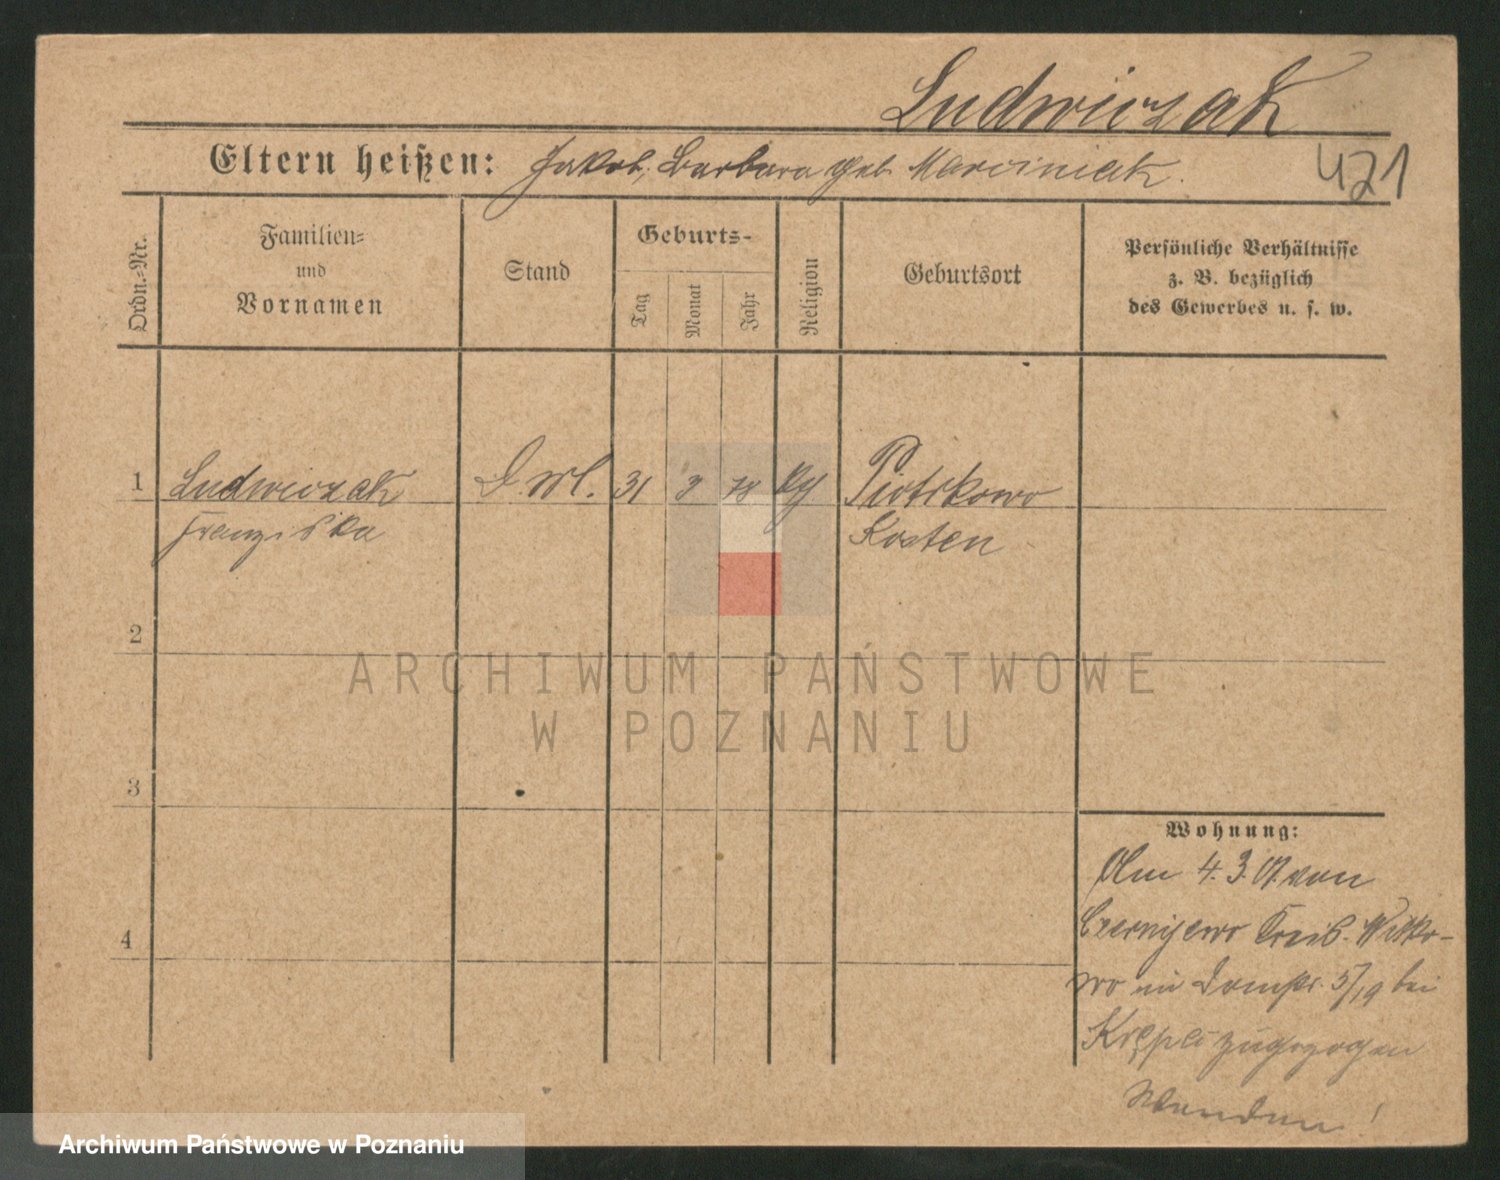 Ludwiczak
Eltern heißen: Jakob, Barbara geb Marciniak.
421
Ordn.-Nr.
Familien- und Vornamen
Stand
Geburts-
Tag
Monat
Jahr
Religion
Geburtsort
Persönliche Verhältnisse
z. B. bezüglich
des Gewerbes u. s. w.
1 Ludwiczak D. Ml. 31 3 78 Piotrkowo
Franziska Kosten
2
ARCHIWUM PAŃSTWOWE
W POZNANIU
3
4
Wohnung:
Am 4. 3. 07. von
Czerniejewo Kreis. Witko-
wo in Domstr. 5/19 bei
zugezogen
Wenden!
Archiwum Państwowe w Poznaniu